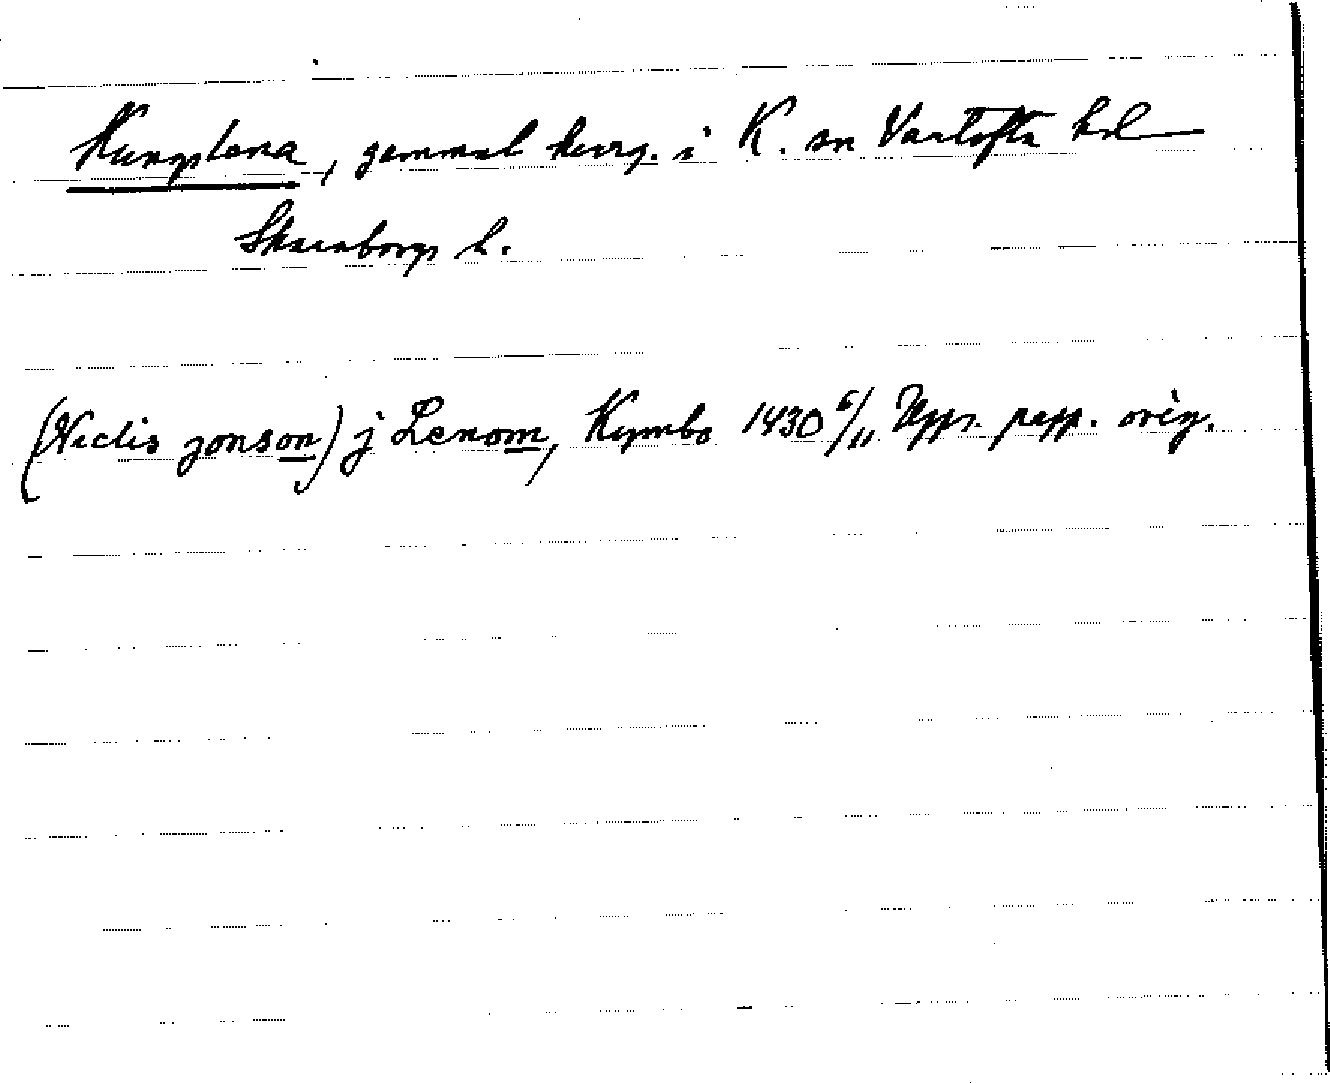 Kungslena, gammal kungsg. i K. sn Vartofta hd
Skaraborgs l.
(Niclis jonson) j Lenom, Kymbo 1430 6/11 Upps. papp. orig.